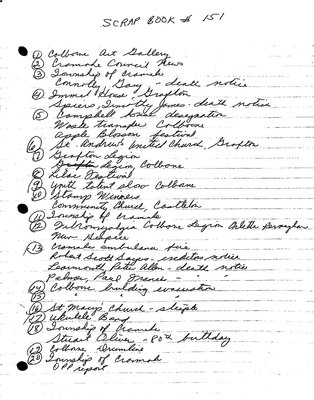 SCRAP BOOK # 151
① Colborne Art Gallery
② Cramahe Council News
③ Township of Cramahe
Connolly Gary - death notice
④ Immel House, Grafton
Spiers, Timothy James - death notice
⑤ Campbell house designation
Waste transfer Colborne
Apple Blossom festival
⑥ St. Andrew's United Church, Grafton
⑦ Grafton Legion
Legion, Colborne
⑧ Lilac Festival
⑨ Youth talent show Colborne
⑩ Stamp Winners
Community Church, Castleton
⑪ Township of Cramahe
⑫ Fibromyalgia Colborne Legion
New Hospice
⑬ Cramahe ambulance fire
Robert Scott Sayes - notice
Learmouth, Peter Allen - death notice
Palmer, Paul Francis - " "
⑭ Colborne building evacuation
⑮ " " "
⑯ St Mary's Church -
⑰ Ukulele Band
⑱ Township of Cramahe
Stuart Oliver - 80th birthday
⑲ Colborne Drumline
⑳ Township of Cramahe
OPP report